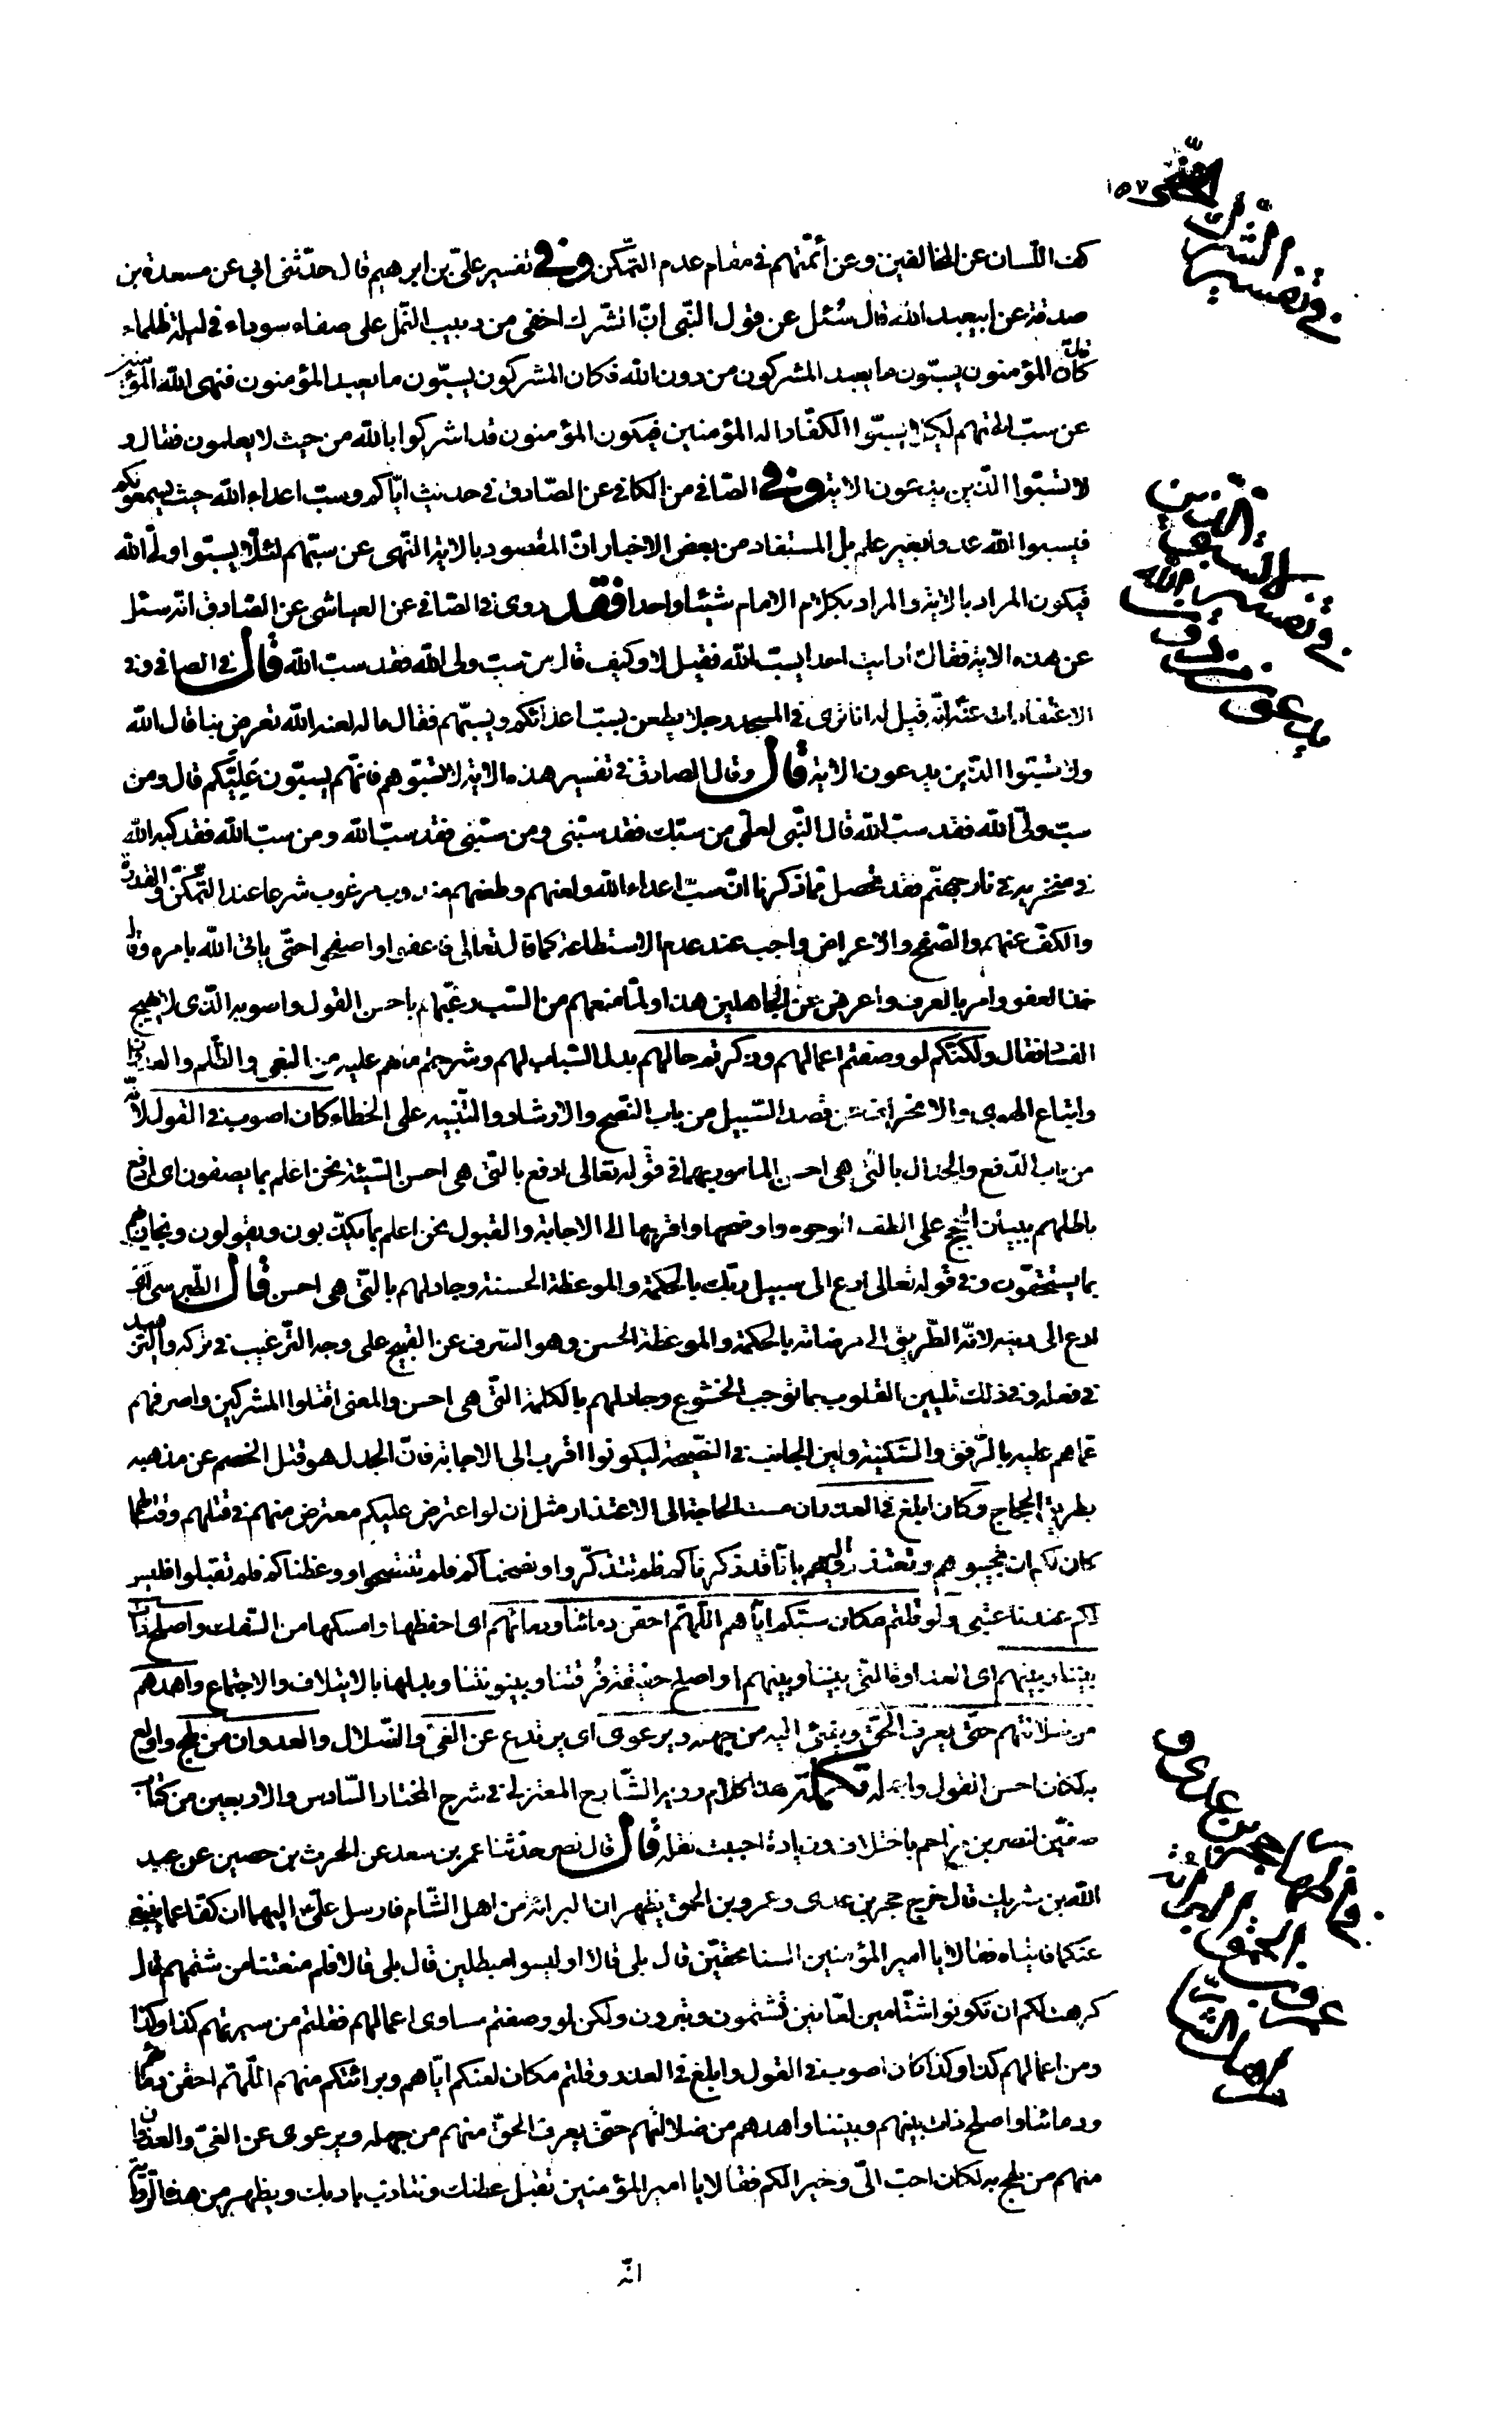 ١٥٧
في تفسير الشرك الخفيّ
كفّ اللّسان عن المخالفين وعن أئمّتهم في مقام عدم التمكّن وفي تفسير عليّ بن ابرهيم قال حدّثني ابي عن مسعدة بن
صدقة عن ابيعبد الله قال سُئل عن قول النّبي انّ الشّرك اخفى من دبيب النّمل على صفاء سوداء في ليلة ظلماء
قال كان المؤمنون يسبّون ما يعبد المشركون من دون الله فكان المشركون يسبّون ما يعبد المؤمنون فنهى الله المؤمنين
عن سبّ الهتهم لكيلا يسبّوا الكفّار اله المؤمنين فيكون المؤمنون قد اشركوا بالله من حيث لا يعلمون فقال و
لا تسبّوا الّذين يدعون الاية وفي الصّافي من الكافي عن الصّادق في حديث ايّاكم وسبّ اعداء الله حيث يسمعونكم
فيسبوا الله عدوا بغير علم بل المستفاد من بعض الاخبار انّ المقصود بالاية النّهى عن سبّهم لئلّا يسبّوا اولياء الله
فيكون المراد بالاية والمراد بكلام الامام شيئا واحدا فقد روى في الصّافي عن العياشى عن الصّادق انّه سئل
عن هذه الاية فقال أرايت احدا يسبّ الله فقيل لا وكيف قال من سبّ ولى الله فقد سبّ الله قال في الصافي وفي
الاعتقادات عنه انّه قيل له انا نرى في المسجد رجلا يعلن بسبّ اعدائكم ويسبّهم فقال ما له لعنه الله تعرض بنا قال الله
ولا تسبّوا الّذين يدعون الاية قال وقال الصادق في تفسير هذه الاية لا تسبّوهم فانّهم يسبّون عَليّكم قال ومن
سبّ ولىّ الله فقد سبّ الله قال النّبى لعلىّ من سبّك فقد سبّنى ومن سبّنى فقد سبّ الله ومن سبّ الله فقد كبه الله
على منخريه في نار جهنّم فقد تحصل ممّا ذكرنا انّ سبّ اعداء الله ولعنهم وطعنهم مندوب مرغوب شرعا عند التّمكّن والقدرة
والكفّ عنهم والصّفح والاعراض واجب عند عدم الاستطاعة كما قال تعالى فاعفوا واصفحوا حتّى ياتى الله بامره وقال
خذ العفو وامر بالعرف واعرض عن الجاهلين هذا ولمّا منعهم من السّب رغّبهم باحسن القول واصوبه الّذى لا يهيج
الفساد فقال ولكنّكم لو وصفتم اعمالهم وذكرتم حالهم بدل السّباب لهم وشرحتم ما هم عليه من البغى والظّلم والعدوان
واتباع الهوى والانحراف عن قصد السّبيل من باب النّصح والارشاد والتّنبيه على الخطاء كان اصوب في القول لانّه
من باب الدّفع والجدال بالّتى هى احسن المامور بهما في قوله تعالى ادفع بالّتى هى احسن السّيئة نحن اعلم بما يصفون اى ادفع
باطلهم ببيان الحجج على الطف الوجوه واوضحها واقربها الى الاجابة والقبول نحن اعلم بما يكذّبون ويقولون ونجازيهم
بما يستحقّون وفي قوله تعالى ادع الى سبيل ربّك بالحكمة والموعظة الحسنة وجادلهم بالّتى هى احسن قال الطّبرسى اى
ادع الى دينه لانّه الطّريق الى مرضاته بالحكمة والموعظة الحسن وهو الصّرف عن القبيح على وجه التّرغيب في تركه والتّزهيد
في فعله وفي ذلك تليين القلوب بما توجب الخشوع وجادلهم بالكلمة الّتى هى احسن والمعنى اقتلوا المشركين واصرفهم
عمّا هم عليه بالرّفق والسّكينة ولين الجانب في النّصيحة ليكونوا اقرب الى الاجابة فانّ الجدل هو قتل الخصم عن مذهبه
بطريق الحجاج وكان ابلغ في العذر ان مسّت الحاجة الى الاعتذار مثل ان لو اعترض عليكم معترض منهم في قتلهم وقتالهم
كان لكم ان تجيبوهم وتعتذروا اليهم بانّا قد ذكرناكم فلم تتذكّروا ونصحناكم فلم تنتصحوا ووعظناكم فلم تقبلوا فليس
لكم عندنا عتبى ولو قلتم مكان سبّكم ايّاهم اللّهمّ احقن دمائنا ودمائهم اى احفظها وامسكها من السّفك واصلح ذات
بيننا وبينهم اى العداوة الّتى بيننا وبينهم او اصلح حقيقة فُرقتنا وبينونتنا وبدلها بالايتلاف والاجتماع واهدهم
من ضلالتهم حتّى يعرف الحقّ ويفئ اليه من جهله ويرعوى اى يرتدع عن الغىّ والضّلال والعدوان من لهج واولع
به لكان احسن القول واجمله تكملة هذا كلام رويه الشّارح المعتزلى في شرح المختار السّادس والاربعين من كتاب
صفّين لنصر بن مزاحم باختلاف وزيادة احببت نقله قال قال نصر حدّثنا عمر بن سعد عن الحرث بن حصين عن عبد
الله بن شريك قال خرج حجر بن عدى وعمرو بن الحمق يظهران البرائة من اهل الشّام فارسل علىّ اليهما ان كفّا عما يبلغنى
عنكما فاتياه فقالا يا امير المؤمنين السنا محقّين قال بلى قالا اوليسوا مبطلين قال بلى قالا فلم منعتنا من شتمهم قال
كرهت لكم ان تكونوا شتّامين لعّانين تشتمون وتبرون ولكن لو وصفتم مساوى اعمالهم فقلتم من سيرتهم كذا وكذا
ومن اعمالهم كذا وكذا كان اصوب في القول وابلغ في العذر وقلتم مكان لعنكم ايّاهم وبرائتكم منهم اللّهمّ احقن دمائهم
ودمائنا واصلح ذات بينهم وبيننا واهدهم من ضلالتهم حتّى يعرف الحقّ منهم من جهله ويرعوى عن الغىّ والعدوان
منهم من لهج به لكان احبّ الىّ وخيرا لكم فقالا يا امير المؤمنين نقبل عظتك ونتادّب بادبك ويظهر من هذه الرّواية
انّه
في تفسير
في اظهار حجر بن عدى و
عمرو بن الحمق البرائة
من اهل الشّام